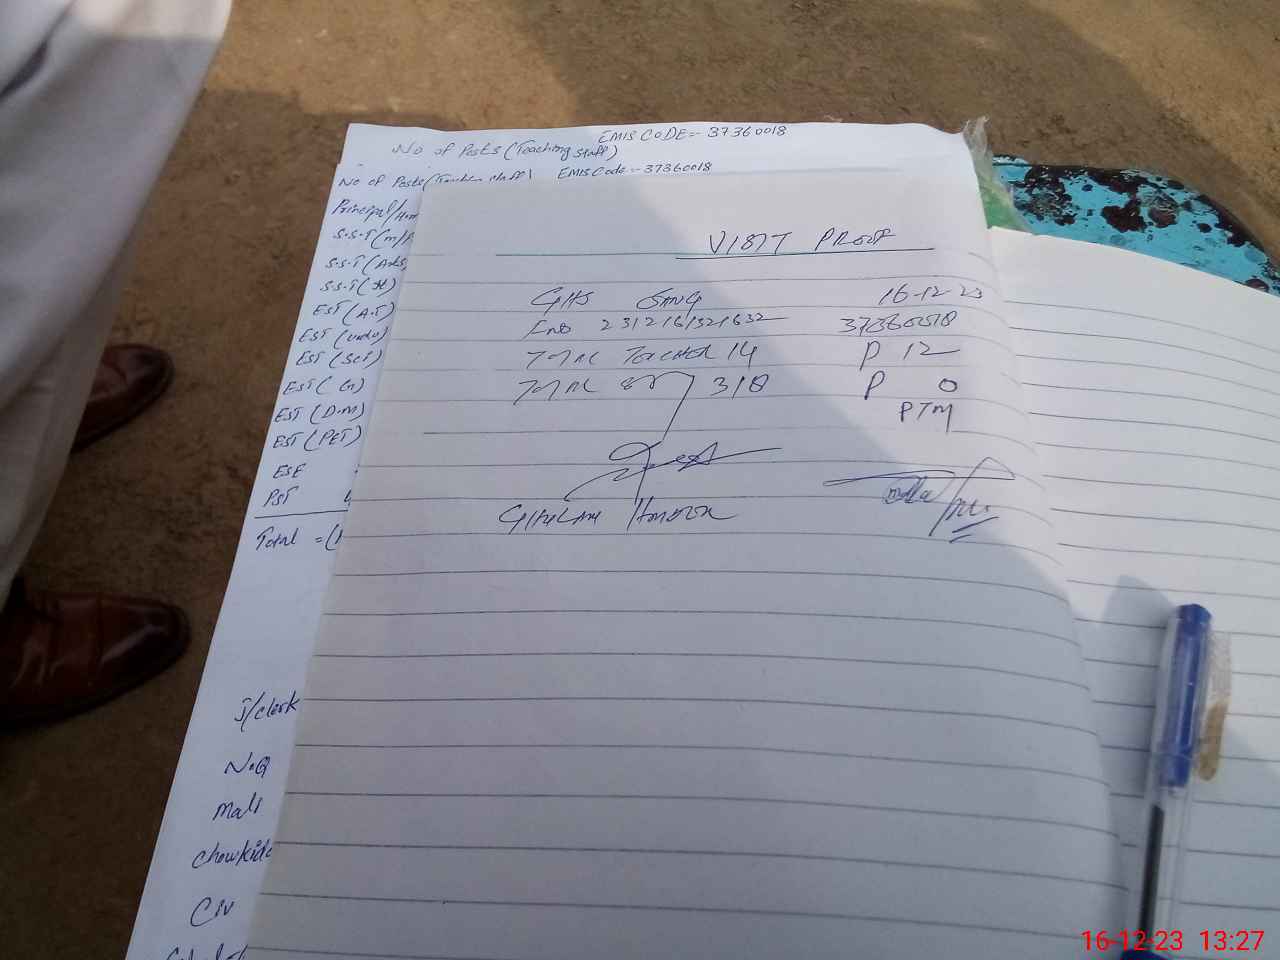 EMIS CODE:- 37360018
No of Posts (Teaching Staff)
No of Posts (Teachin staff) EMIS Code:- 37360018
Principal/
S.S.T (M/
S.S.T (Arts
S.S.T (
EST (A.T)
EST (Urdu)
EST (Sci)
EST (
EST (D.M)
EST (PET)
ESE
PST
Total = (1
J/Clerk
N.Q
Mali
Chowkida
VISIT PROOF
GHS 16-12-23
2312161321632 37360018
TOTAL TEACHER 14 P 12
TOTAL 318 P 0
PTM
GHULAM
16-12-23 13:27